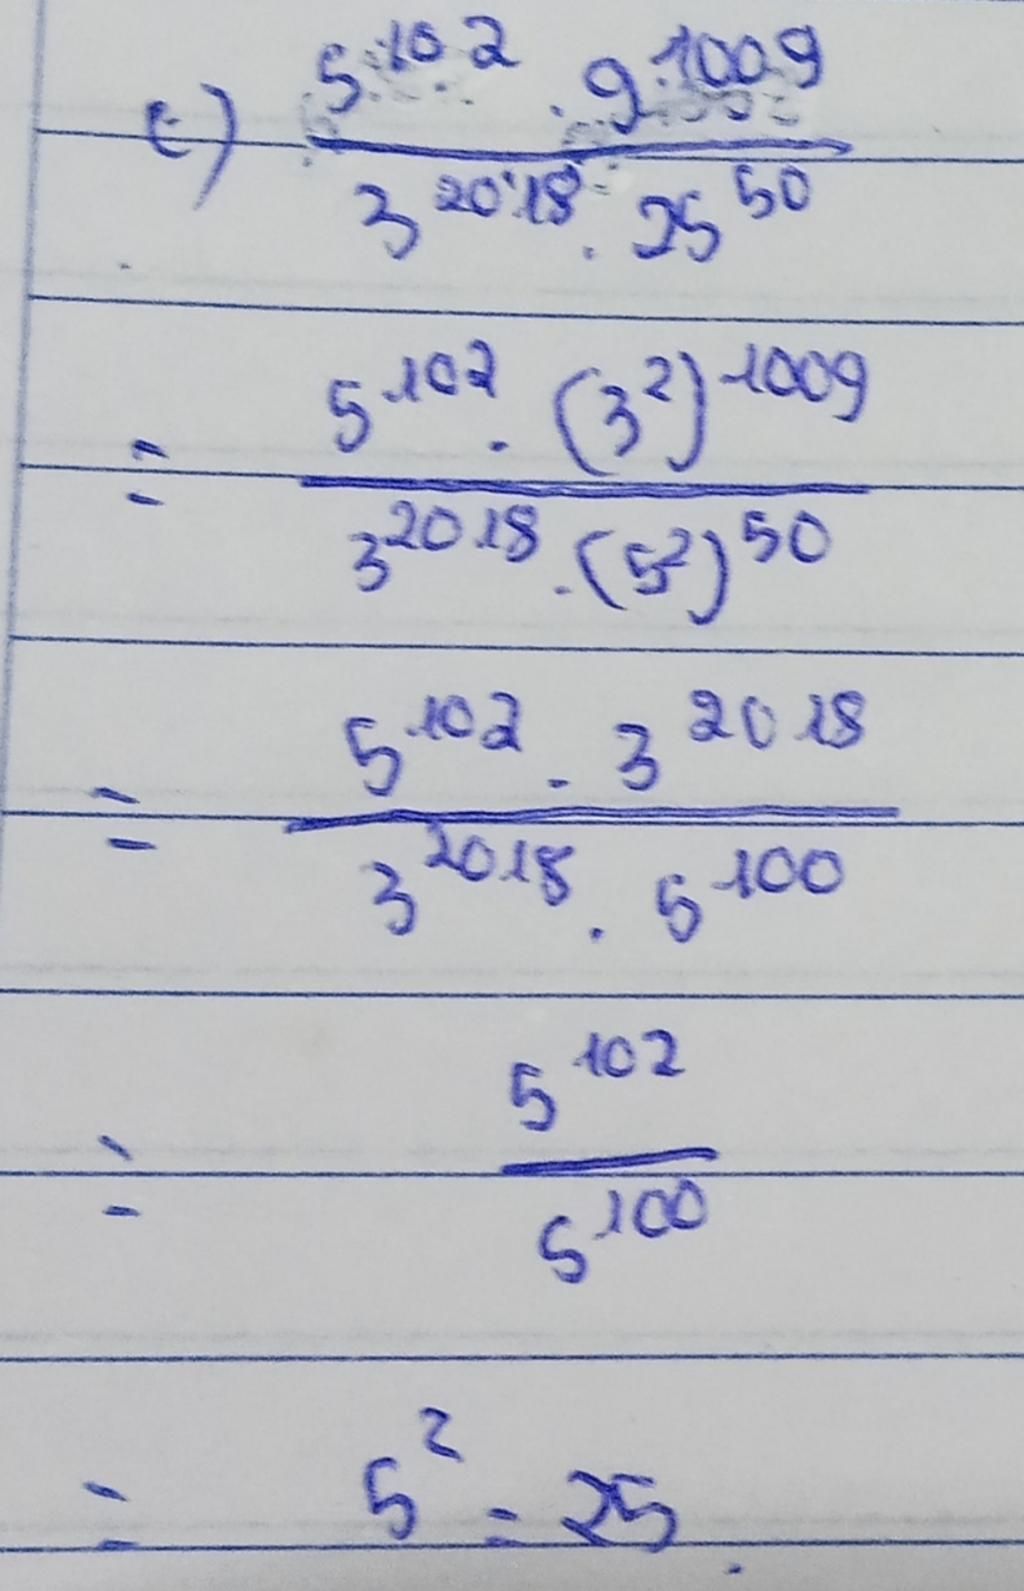 c) \frac{5^{102} . 9^{1009}}{3^{2018} . 25^{50}}
= \frac{5^{102} . (3^2)^{1009}}{3^{2018} . (5^2)^{50}}
= \frac{5^{102} . 3^{2018}}{3^{2018} . 5^{100}}
= \frac{5^{102}}{5^{100}}
= 5^2 = 25.